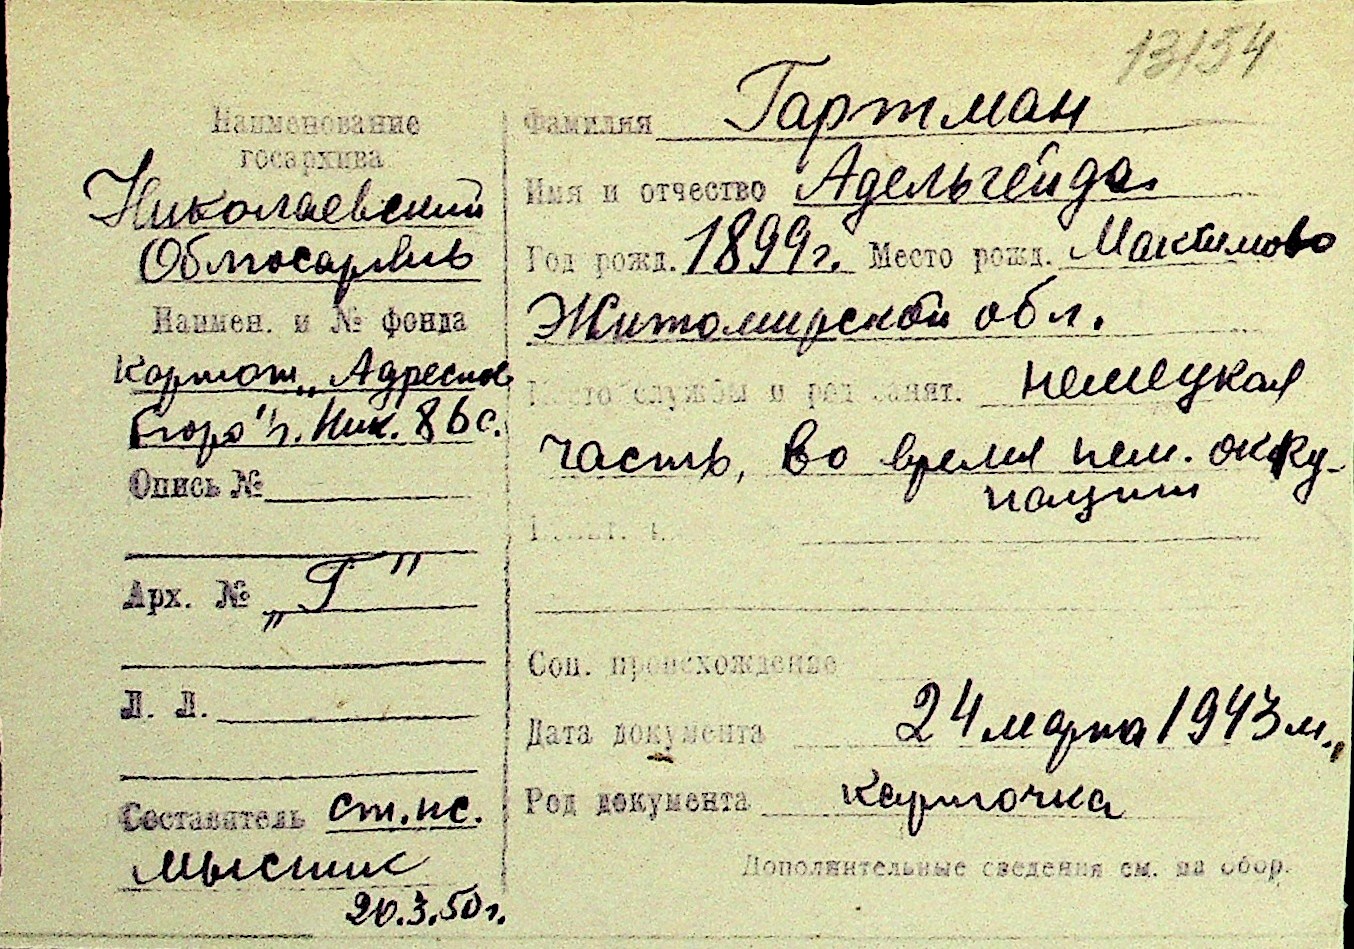 13154
Наименование
госархива
Николаевский
Облгосархив
Наимен. и № фонда
Картот. „Адресное
бюро" г. Ник.
Опись №
Арх. № „Г"
Л. Л.
Составитель ст. нс.
Мысник
20.3.50 г.
Фамилия Гартман
Имя и отчество Адельгейда
Год рожд. 1899 г. Место рожд.
Житомирской обл.
Место службы и род занят. немецкая
часть, во время нем. окку-
пации
Соц. происхождение
Дата документа 24 марта 1943
Род документа карточка
Дополнительные сведения см. на обор.